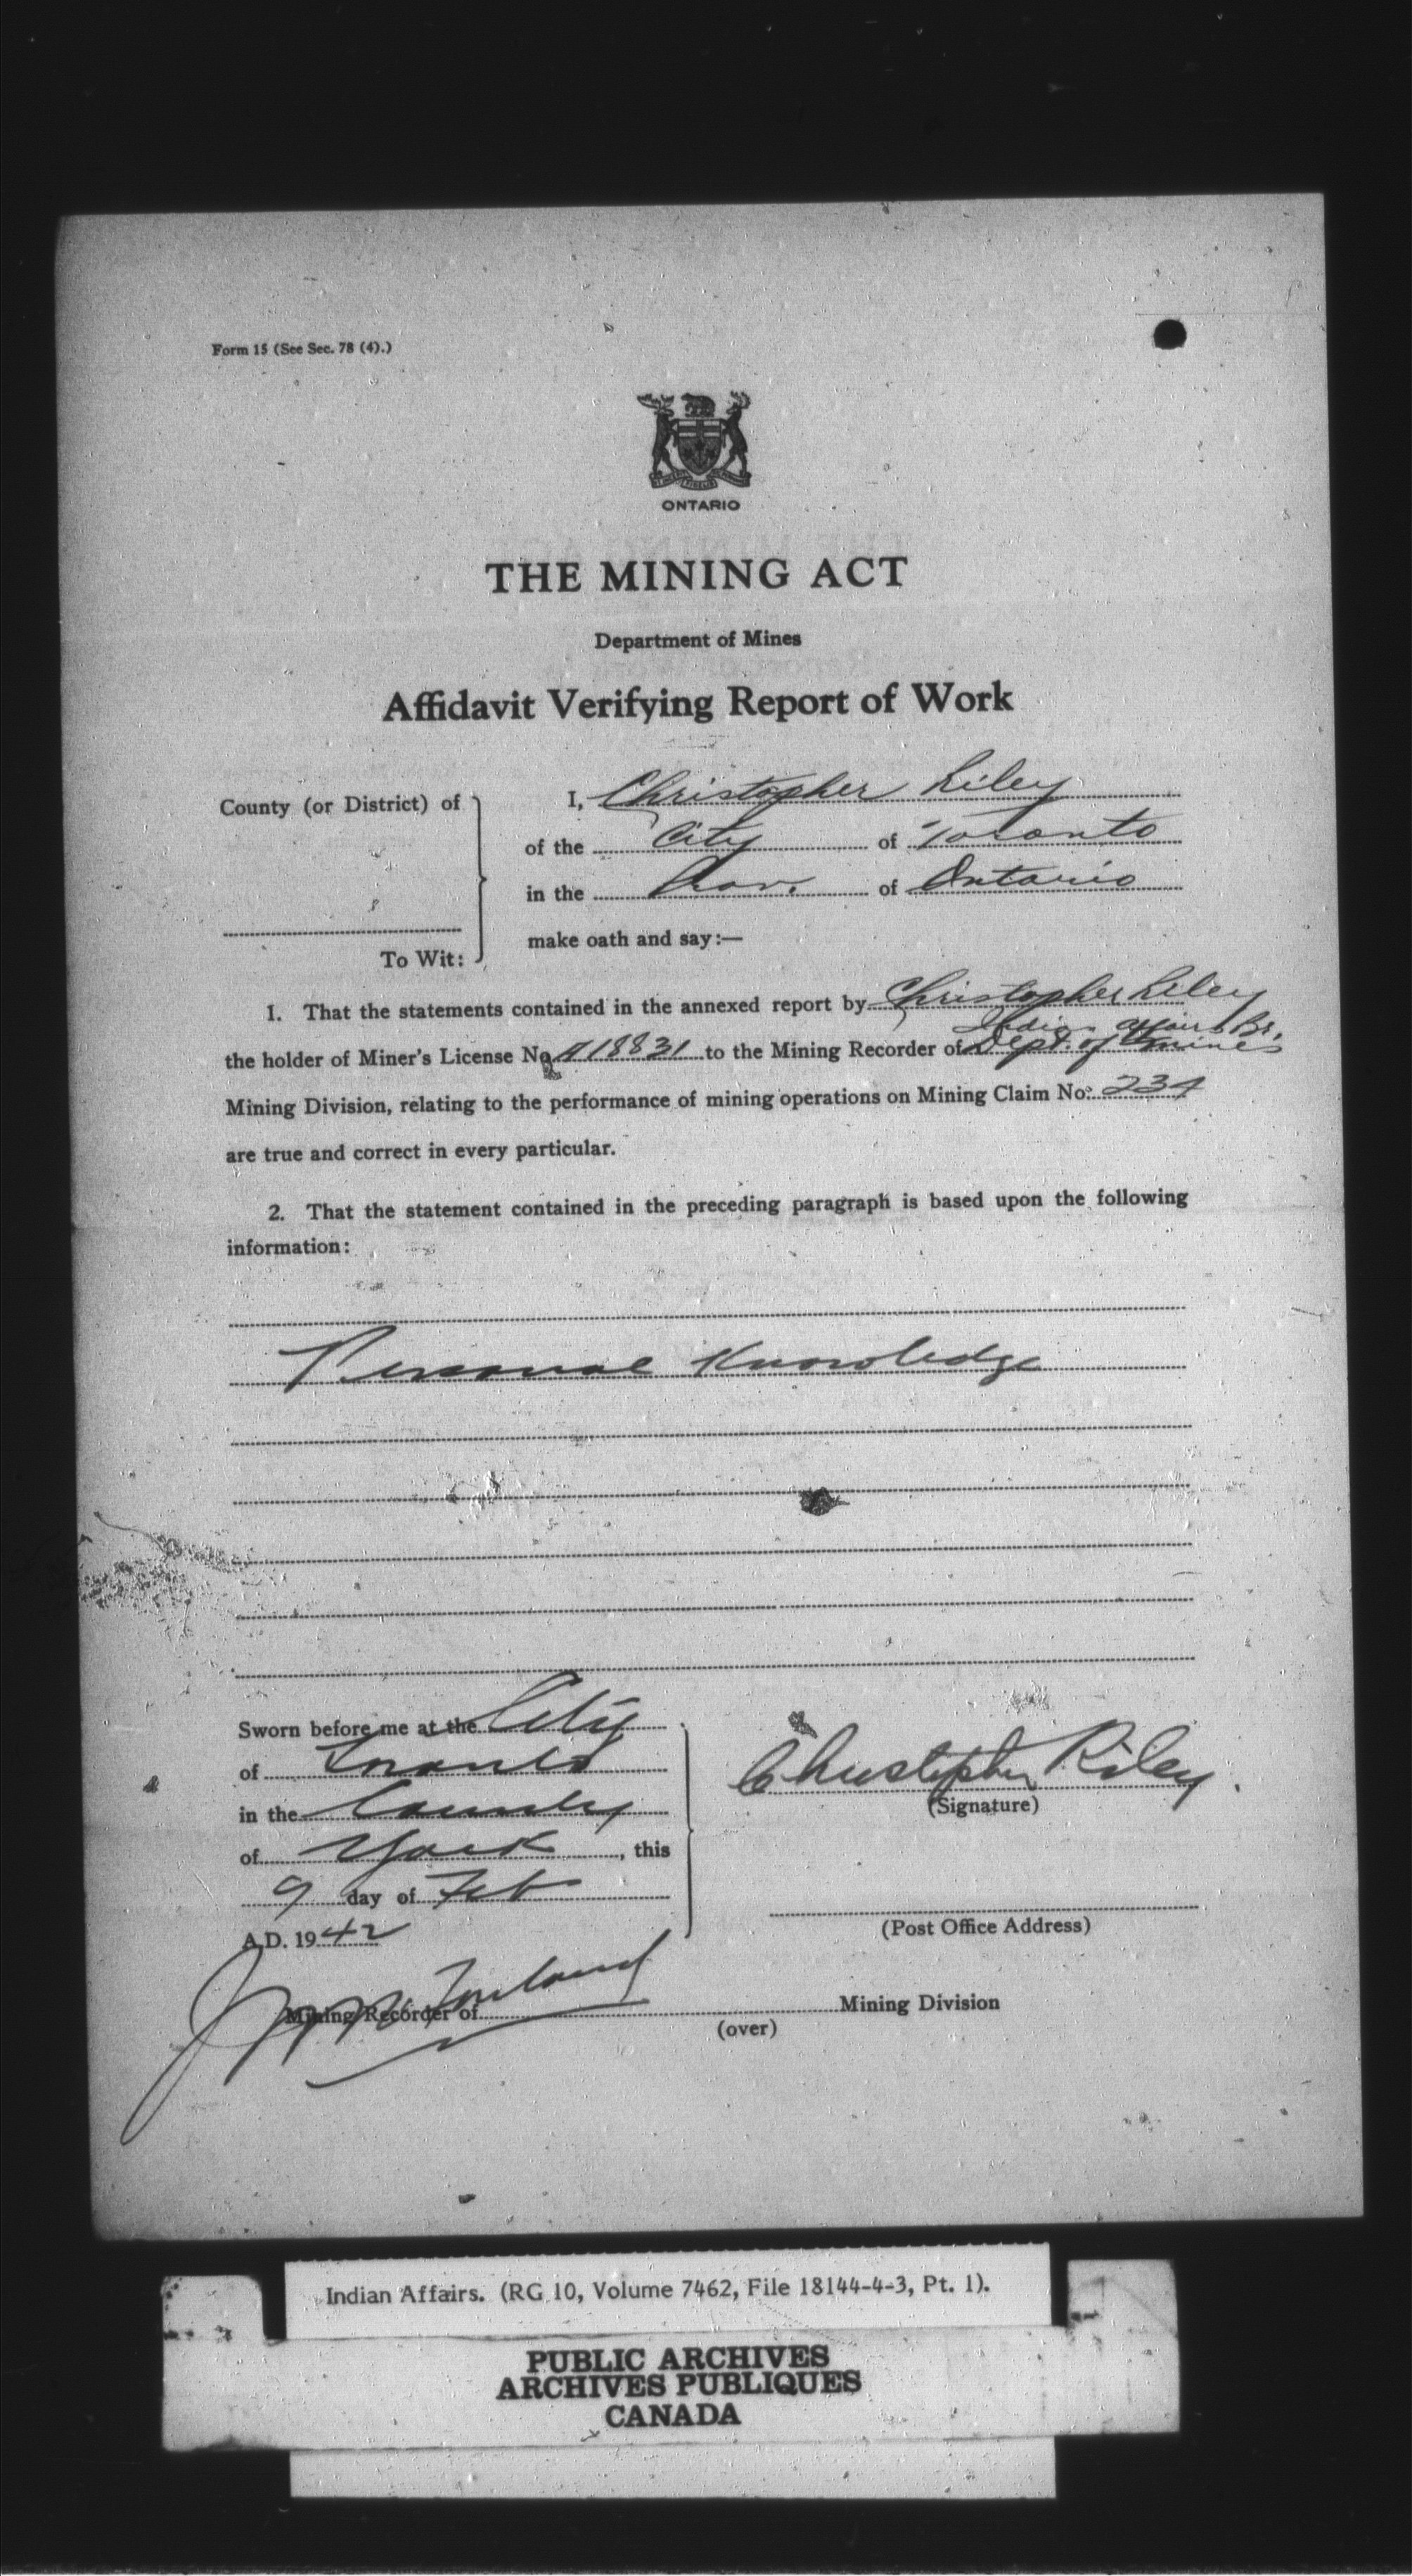 Form 15 (See Sec. 78 (4).)
ONTARIO
THE MINING ACT
Department of Mines
Affidavit Verifying Report of Work
County (or District) of
To Wit:
I, Christopher Riley
of the City of Toronto
in the Prov. of Ontario
make oath and say:—
1. That the statements contained in the annexed report by Christopher Riley
Indian Affairs Br.
the holder of Miner's License No. A18831 to the Mining Recorder of Dept. of Mines
Mining Division, relating to the performance of mining operations on Mining Claim No. 234
are true and correct in every particular.
2. That the statement contained in the preceding paragraph is based upon the following
information:
Personal Knowledge
Sworn before me at the City
of Toronto
in the County
of York, this
9 day of Feb
A.D. 1942
Christopher Riley.
(Signature)
(Post Office Address)
Mining Recorder of Mining Division
(over)
Indian Affairs. (RG 10, Volume 7462, File 18144-4-3, Pt. 1).
PUBLIC ARCHIVES
ARCHIVES PUBLIQUES
CANADA